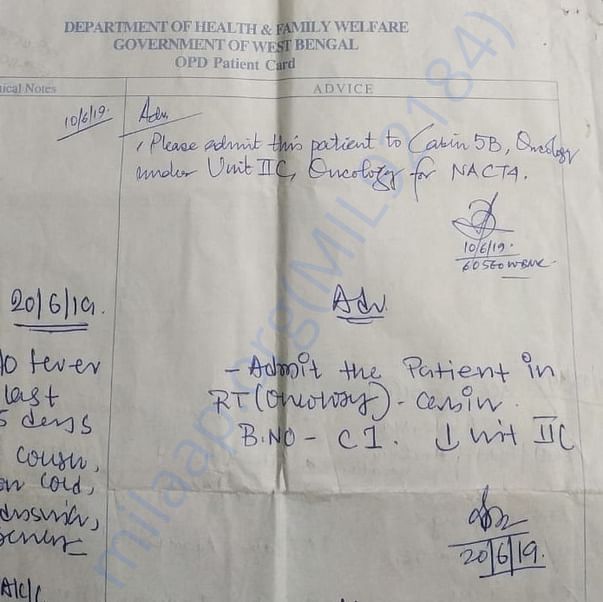 DEPARTMENT OF HEALTH & FAMILY WELFARE
GOVERNMENT OF WEST BENGAL
OPD Patient Card
ical Notes
ADVICE
10/6/19.
Adv.
Please admit this patient to Cabin 5B, Oncology
under Unit IIC, Oncology for NACTA.
10/6/19.
20/6/19.
Adv.
fever
last
5 days
- Admit the Patient in
RT (Oncology) - Cabin.
B.NO - C1. Unit IIC
cold,
20/6/19.
milaap.org(MIL92184)